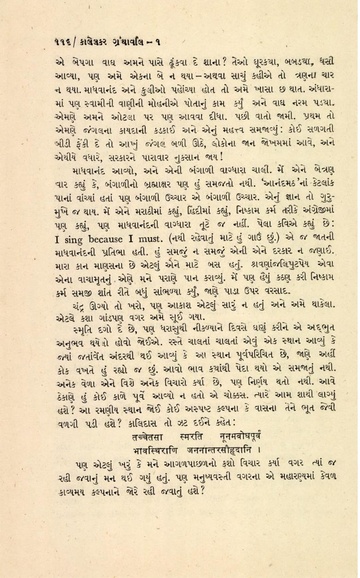 ૧૧૬/ કાલેલકર ગ્રંથાવલિ – ૧
એ બેપગા વાઘ અમને પાસે ઢૂંકવા દે શાના? તેઓ ઘૂરકયા, બબડ્યા, ધસી
આવ્યા, પણ અમે એકના બે ન થયા – અથવા સાચું કહીએ તો ત્રણના ચાર
ન થયા. માધવાનંદ અને કુલીઓ પહોંચ્યા હોત તો અમે ખાસા છ થાત. અંધારા-
માં પણ સ્વામીની વાણીની મોહનીએ પોતાનું કામ કર્યું અને વાઘ નરમ પડ્યા.
એમણે અમને ઓટલા પર પણ આવવા દીધા. પછી વાતો જામી. પ્રથમ તો
એમણે જંગલના કાયદાની કડકાઈ અને એનું મહત્ત્વ સમજાવ્યું: કોઈ સળગતી
બીડી ફેંકી દે તો આખું જંગલ બળી ઊઠે, લોકોના જાન જોખમમાં આવે, અને
એથીયે વધારે, સરકારને પારાવાર નુકસાન જાય!
માધવાનંદ આવ્યો, અને એની બંગાળી વાગ્ધારા ચાલી. મેં એને બેત્રણ
વાર કહ્યું કે, બંગાળીનો બ્રહ્માક્ષર પણ હું સમજતો નથી. ‘આનંદમઠ’નાં કેટલાંક
પાનાં વાંચ્યાં હતાં પણ બંગાળી ઉચ્ચાર એ બંગાળી ઉચ્ચાર. એનું જ્ઞાન તો ગુરુ-
મુખે જ થાય. મેં એને મરાઠીમાં કહ્યું, હિંદીમાં કહ્યું, નિષ્કામ કર્મ તરીકે અંગ્રેજીમાં
પણ કહ્યું, પણ માધવાનંદની વાગ્ધારા તૂટે જ નહીં. પેલા કવિએ કહ્યું છે:
I sing because I must. (નથી રહેવાતું માટે હું ગાઉં છું.) એ જ જાતની
માધવાનંદની પ્રતિભા હતી. હું સમજું ન સમજું એની એને દરકાર ન જણાઈ.
મારા કાન માણસના છે એટલું એને માટે બસ હતું. શ્રવણાંજલિપુટપેય એવા
એના વાચામૃતનું એણે મને પરાણે પાન કરાવ્યું. મેં પણ હૈયું કઠણ કરી નિષ્કામ
કર્મ સમજી શાંત રીતે બધું સાંભળ્યા કર્યું, જાણે પાડા ઉપર વરસાદ.
ચંદ્ર ઊગ્યો તો ખરો, પણ આકાશ એટલું સારું ન હતું અને અમે થાકેલા.
એટલે કશા ગાંડપણ વગર અમે સૂઈ ગયા.
સ્મૃતિ દગો દે છે, પણ ધરાસુથી નીકળ્યાને દિવસે ઘણું કરીને એ અદ્ભુત
અનુભવ થયેલો હોવો જોઈએ. રસ્તે ચાલતાં ચાલતાં એવું એક સ્થાન આવ્યું કે
જ્યાં જતાંવેંત અંદરથી થઈ આવ્યું કે આ સ્થાન પૂર્વપરિચિત છે, જાણે અહીં
કોક વખતે હું રહ્યો જ છું. આવો ભાવ કયાંથી પેદા થયો એ સમજાતું નથી.
અનેક વેળા એને વિશે અનેક વિચારો કર્યા છે, પણ નિર્ણય થતો નથી. આવે
ઠેકાણે હું કોઈ કાળે પૂર્વે આવ્યો ન હતો એ ચોક્કસ. ત્યારે આમ શાથી લાગ્યું
હશે? આ રમણીય સ્થાન જોઈ કોઈ અસ્પષ્ટ કલ્પના કે વાસના તેને ભૂત જેવી
વળગી પડી હશે? કાલિદાસ તો ઝટ દઈને કહેત:
तच्चेतसा स्मरति नूनमबोधपूर्वं
भावस्थिराणि जननान्तरसौहृदानि ।
પણ એટલું ખરું કે મને આગળપાછળનો કશો વિચાર કર્યા વગર ત્યાં જ
રહી જવાનું મન થઈ ગયું હતું. પણ મનુષ્યવસ્તી વગરના એ મહારણ્યમાં કેવળ
કાવ્યમય કલ્પનાને જોરે રહી જવાતું હશે?